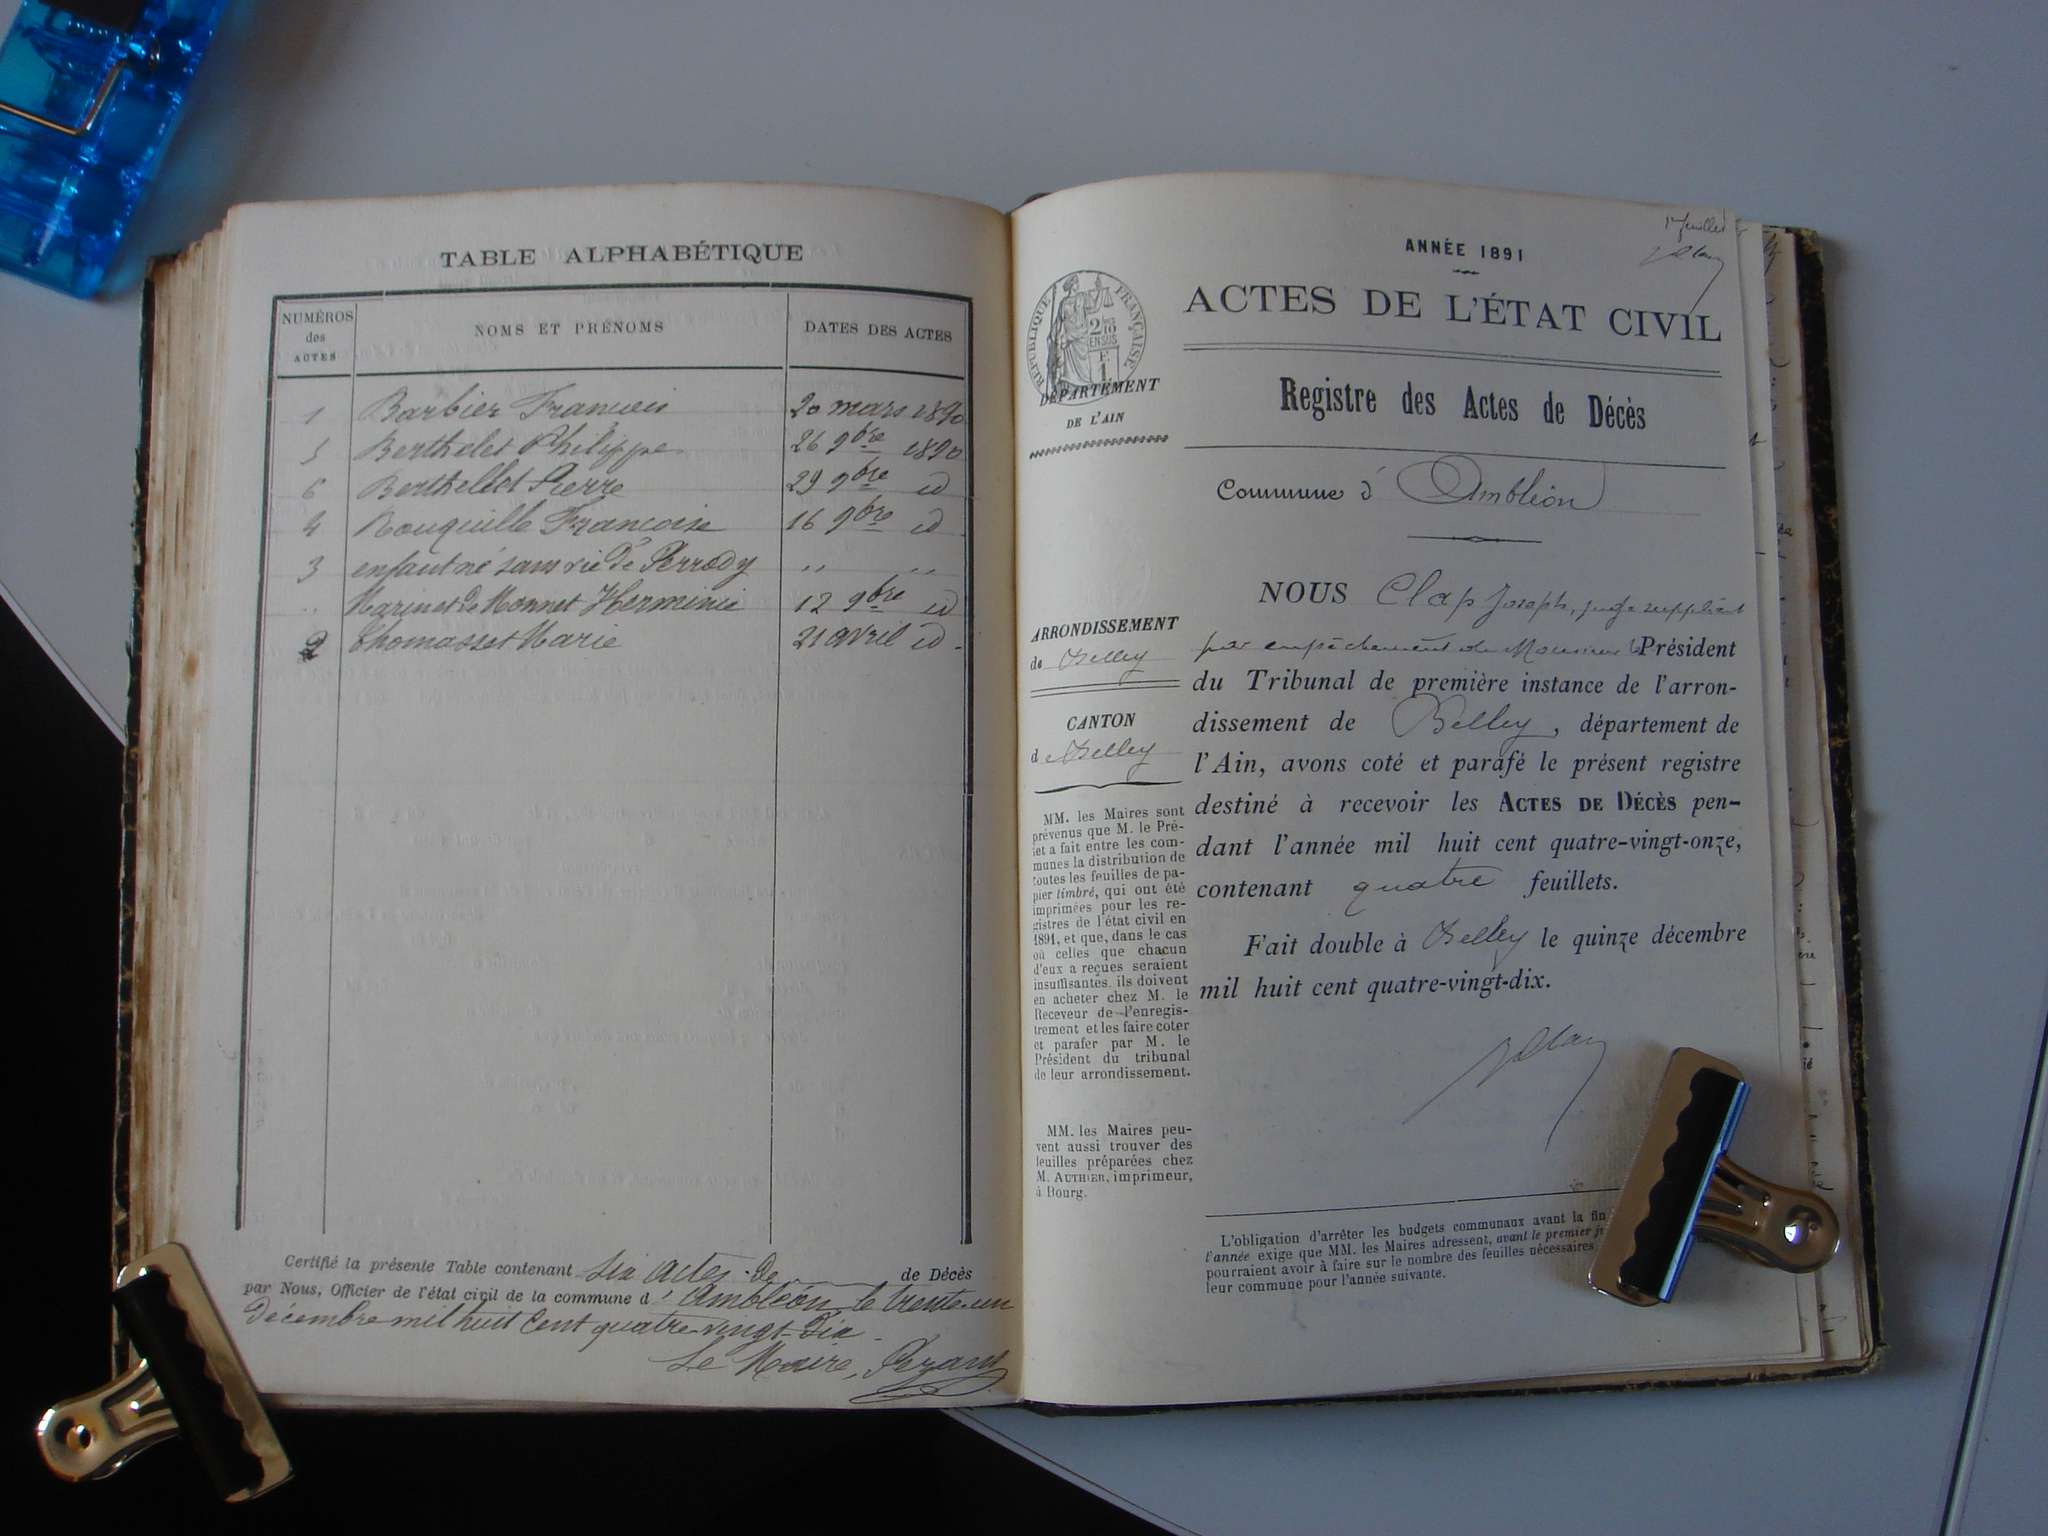 TABLE ALPHABÉTIQUE
NUMÉROS des ACTES NOMS ET PRÉNOMS DATES DES ACTES
1 Barbier Francois 20 mars 1890
5 Berthelet Philippe 26 9bre 1890
6 Berthellet Pierre 29 9bre id
4 Bouquille Francoise 16 9bre id
3 enfant né sans vie de Perrody " "
" Marinet de Monnet Herminie 12 9bre id
2 Thomasset Marie 21 avril id
Certifié la présente Table contenant six actes de de Décès
par Nous, Officier de l'état civil de la commune d' Ambléon le trente un
décembre mil huit cent quatre vingt Dix
Le Maire,
1er feuillet
ANNÉE 1891
ACTES DE L'ÉTAT CIVIL
RÉPUBLIQUE FRANÇAISE
DÉPARTEMENT
DE L'AIN
Registre des Actes de Décès
Commune d' Ambléon
ARRONDISSEMENT
de Belley
CANTON
de Belley
MM. les Maires sont
prévenus que M. le Pré-
fet a fait entre les com-
munes la distribution de
toutes les feuilles de pa-
pier timbré, qui ont été
imprimées pour les re-
gistres de l'état civil en
1891, et que, dans le cas
où celles que chacun
d'eux a reçues seraient
insuffisantes, ils doivent
en acheter chez M. le
Receveur de l'enregis-
trement et les faire coter
et parafer par M. le
Président du tribunal
de leur arrondissement.
MM. les Maires peu-
vent aussi trouver des
feuilles préparées chez
M. AUTHIER, imprimeur,
à Bourg.
NOUS Clap Joseph, juge suppléant
par empêchement de Monsieur le Président
du Tribunal de première instance de l'arron-
dissement de Belley, département de
l'Ain, avons coté et parafé le présent registre
destiné à recevoir les ACTES DE DÉCÈS pen-
dant l'année mil huit cent quatre-vingt-onze,
contenant quatre feuillets.
Fait double à Belley le quinze décembre
mil huit cent quatre-vingt-dix.
L'obligation d'arrêter les budgets communaux avant la fin
l'année exige que MM. les Maires adressent, avant le premier
pourraient avoir à faire sur le nombre des feuilles nécessaires
leur commune pour l'année suivante.